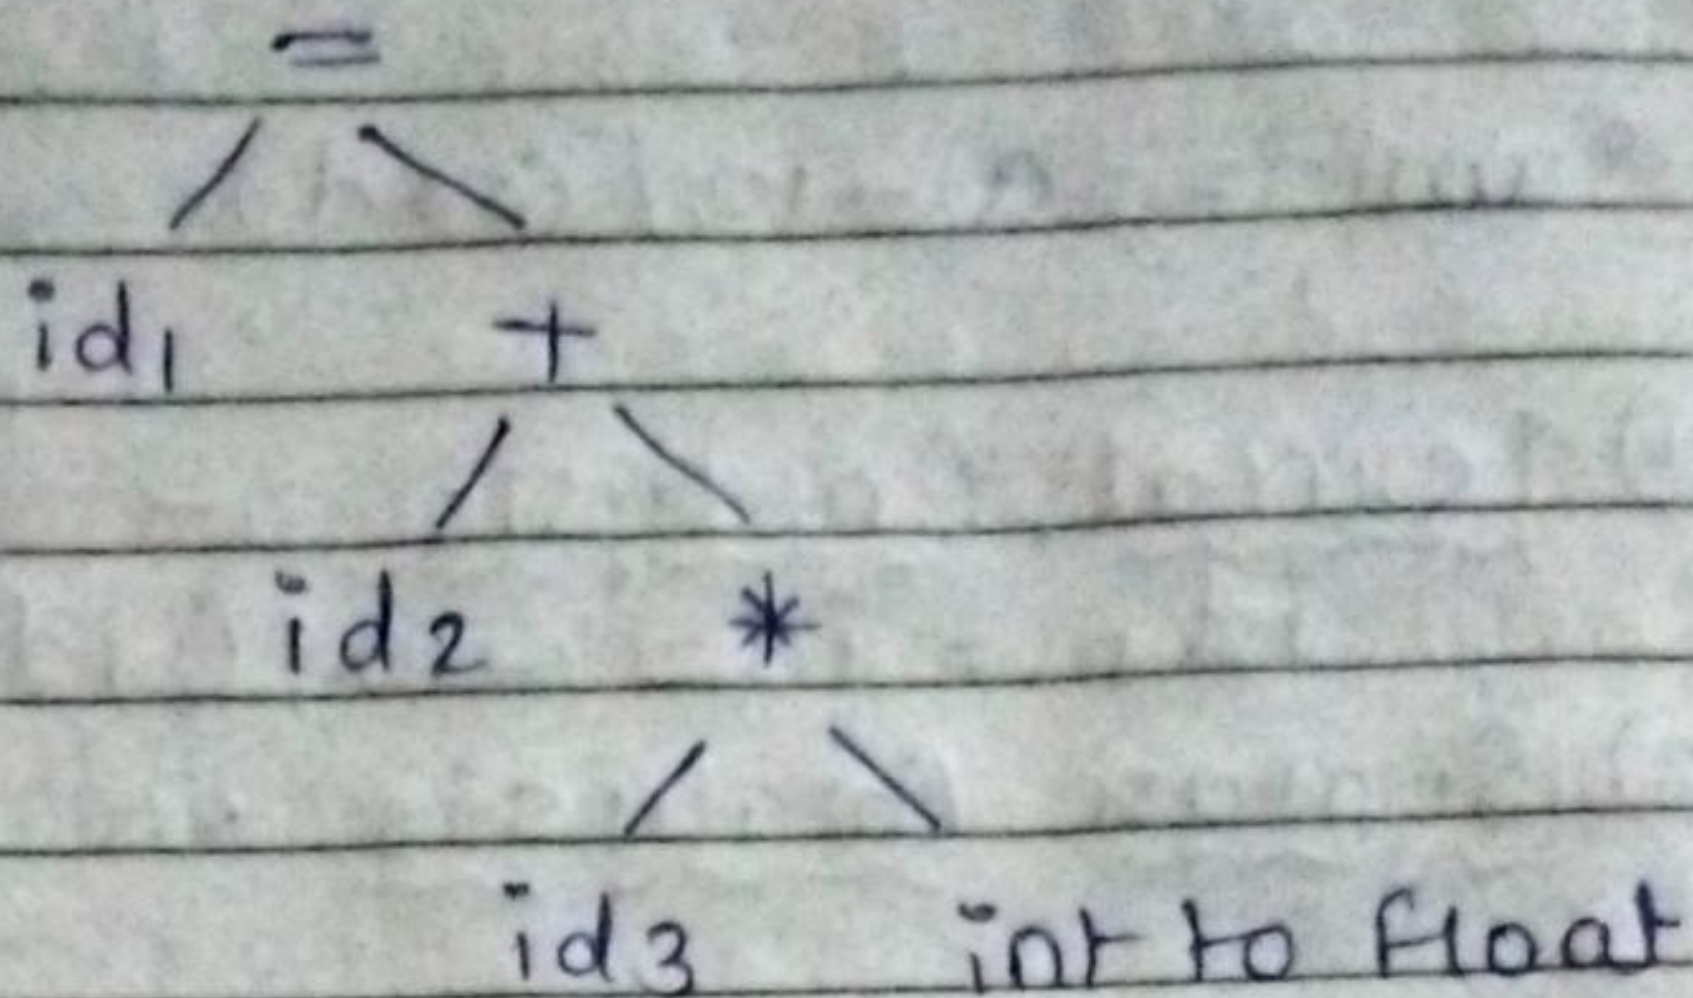 =
id1 +
id2 *
id3 int to float